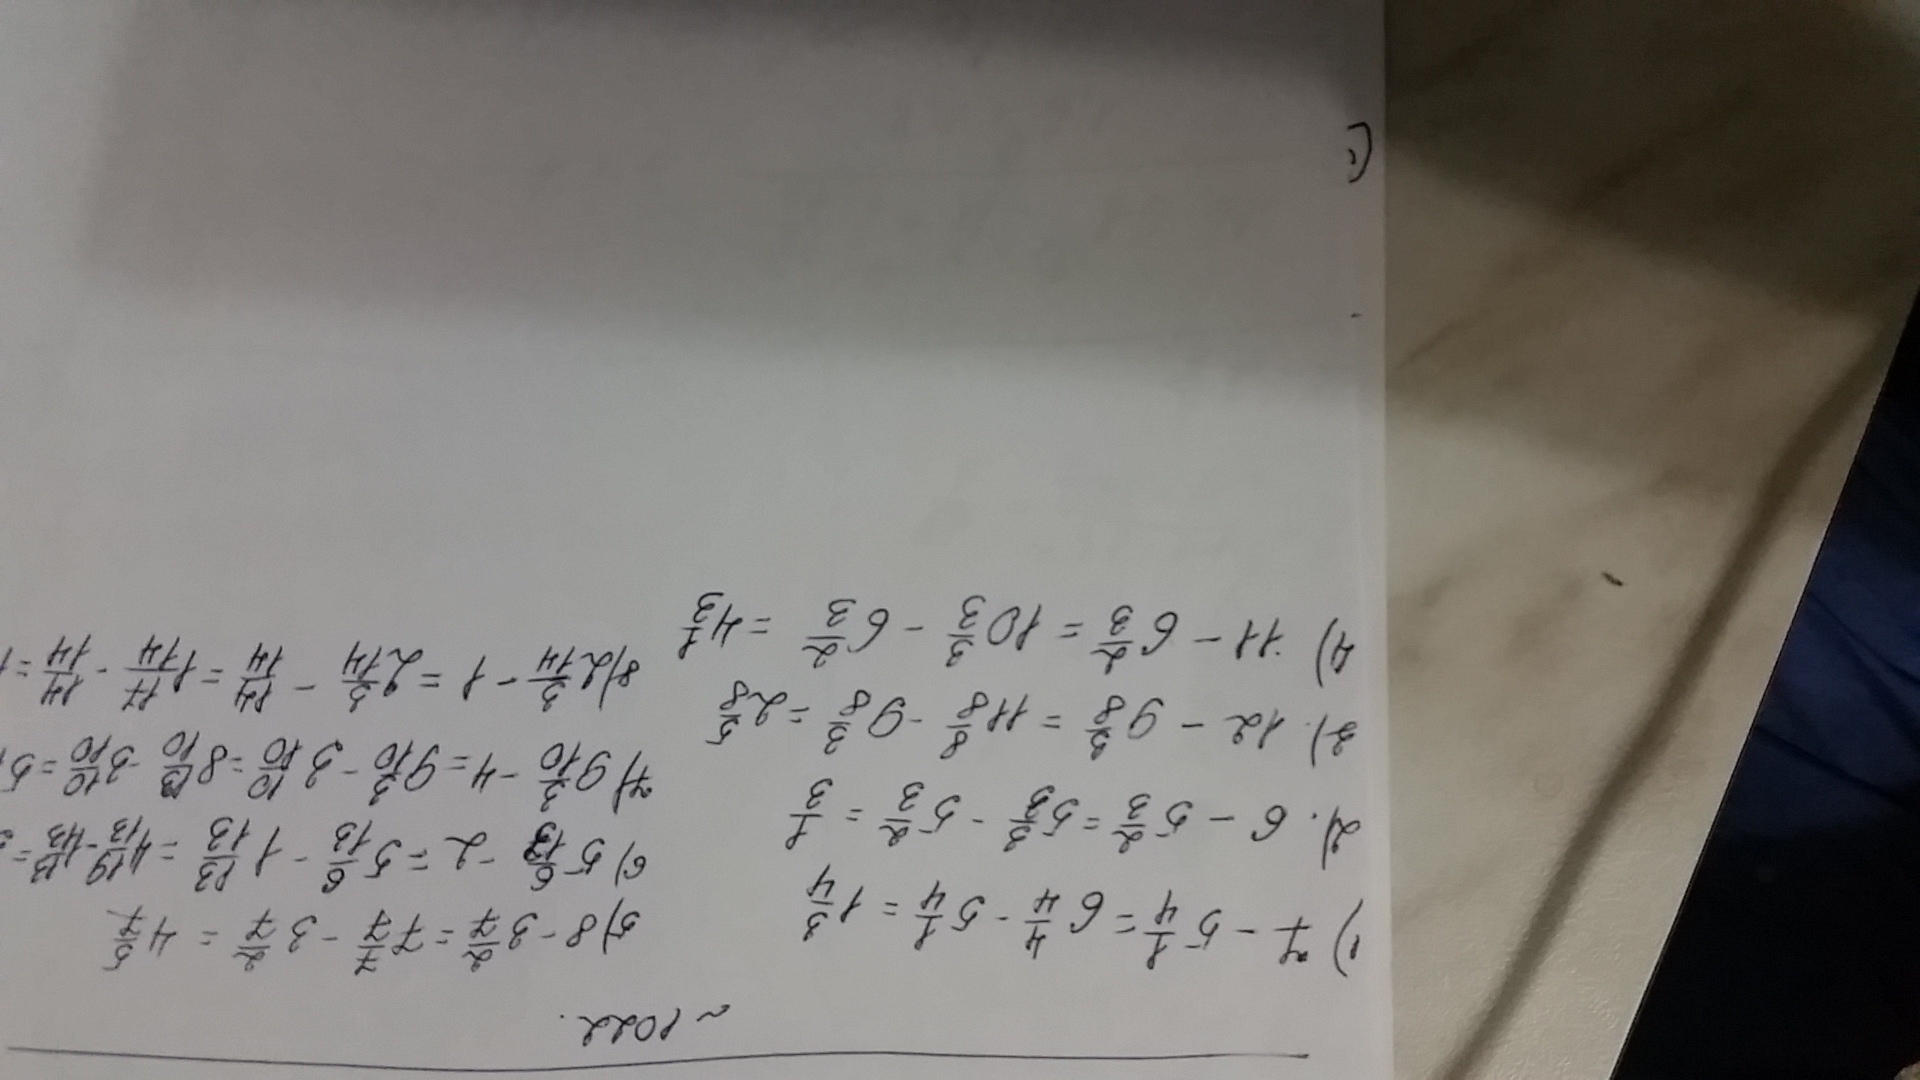 ~ 1022.
1) 7 - 5 1/4 = 6 4/4 - 5 1/4 = 1 3/4
2). 6 - 5 2/3 = 5 3/3 - 5 2/3 = 1/3
3). 12 - 9 3/8 = 11 8/8 - 9 3/8 = 2 5/8
4) 11 - 6 2/3 = 10 3/3 - 6 2/3 = 4 1/3
5) 8 - 3 2/7 = 7 7/7 - 3 2/7 = 4 5/7
6) 5 6/13 - 2 = 5 6/13 - 1 13/13 = 4 19/13 - 1 13/13 =
7) 9 3/10 - 4 = 9 3/10 - 3 10/10 = 8 13/10 - 3 10/10 = 5
8) 2 3/14 - 1 = 2 3/14 - 14/14 = 1 17/14 - 14/14 =